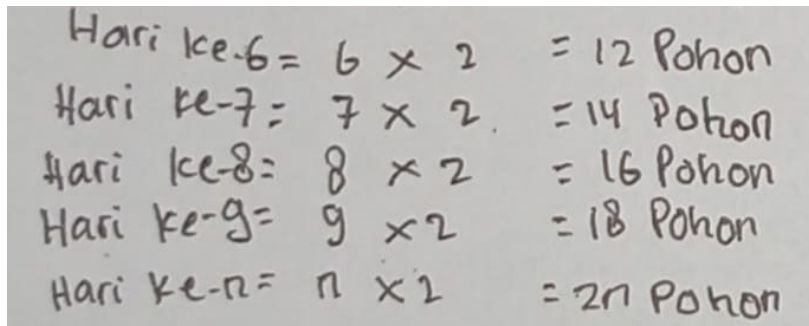 Hari ke-6 = 6 × 2 = 12 Pohon
Hari ke-7 = 7 × 2. = 14 Pohon
Hari ke-8 = 8 × 2 = 16 Pohon
Hari ke-9 = 9 × 2 = 18 Pohon
Hari ke-n = n × 2 = 2n Pohon